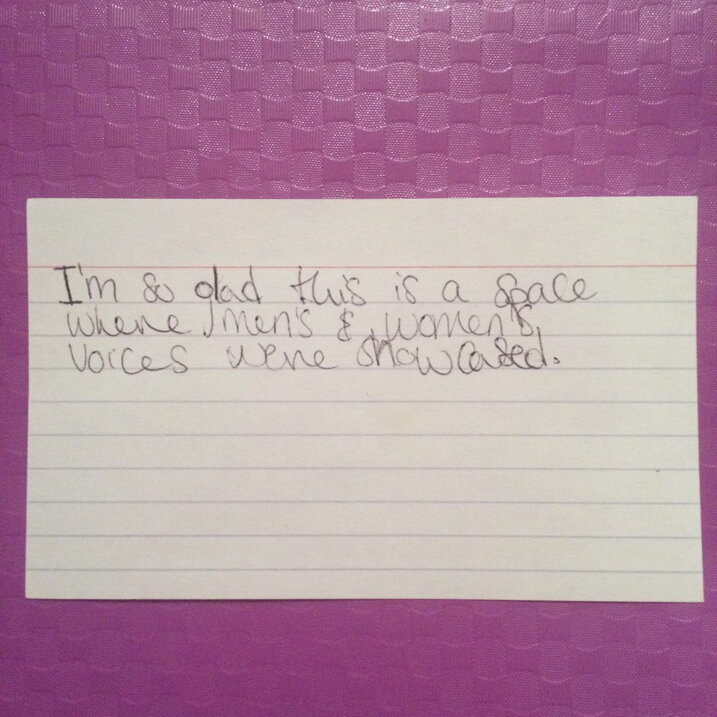 I'm so glad this is a space
where men's & women's
voices were showcased.